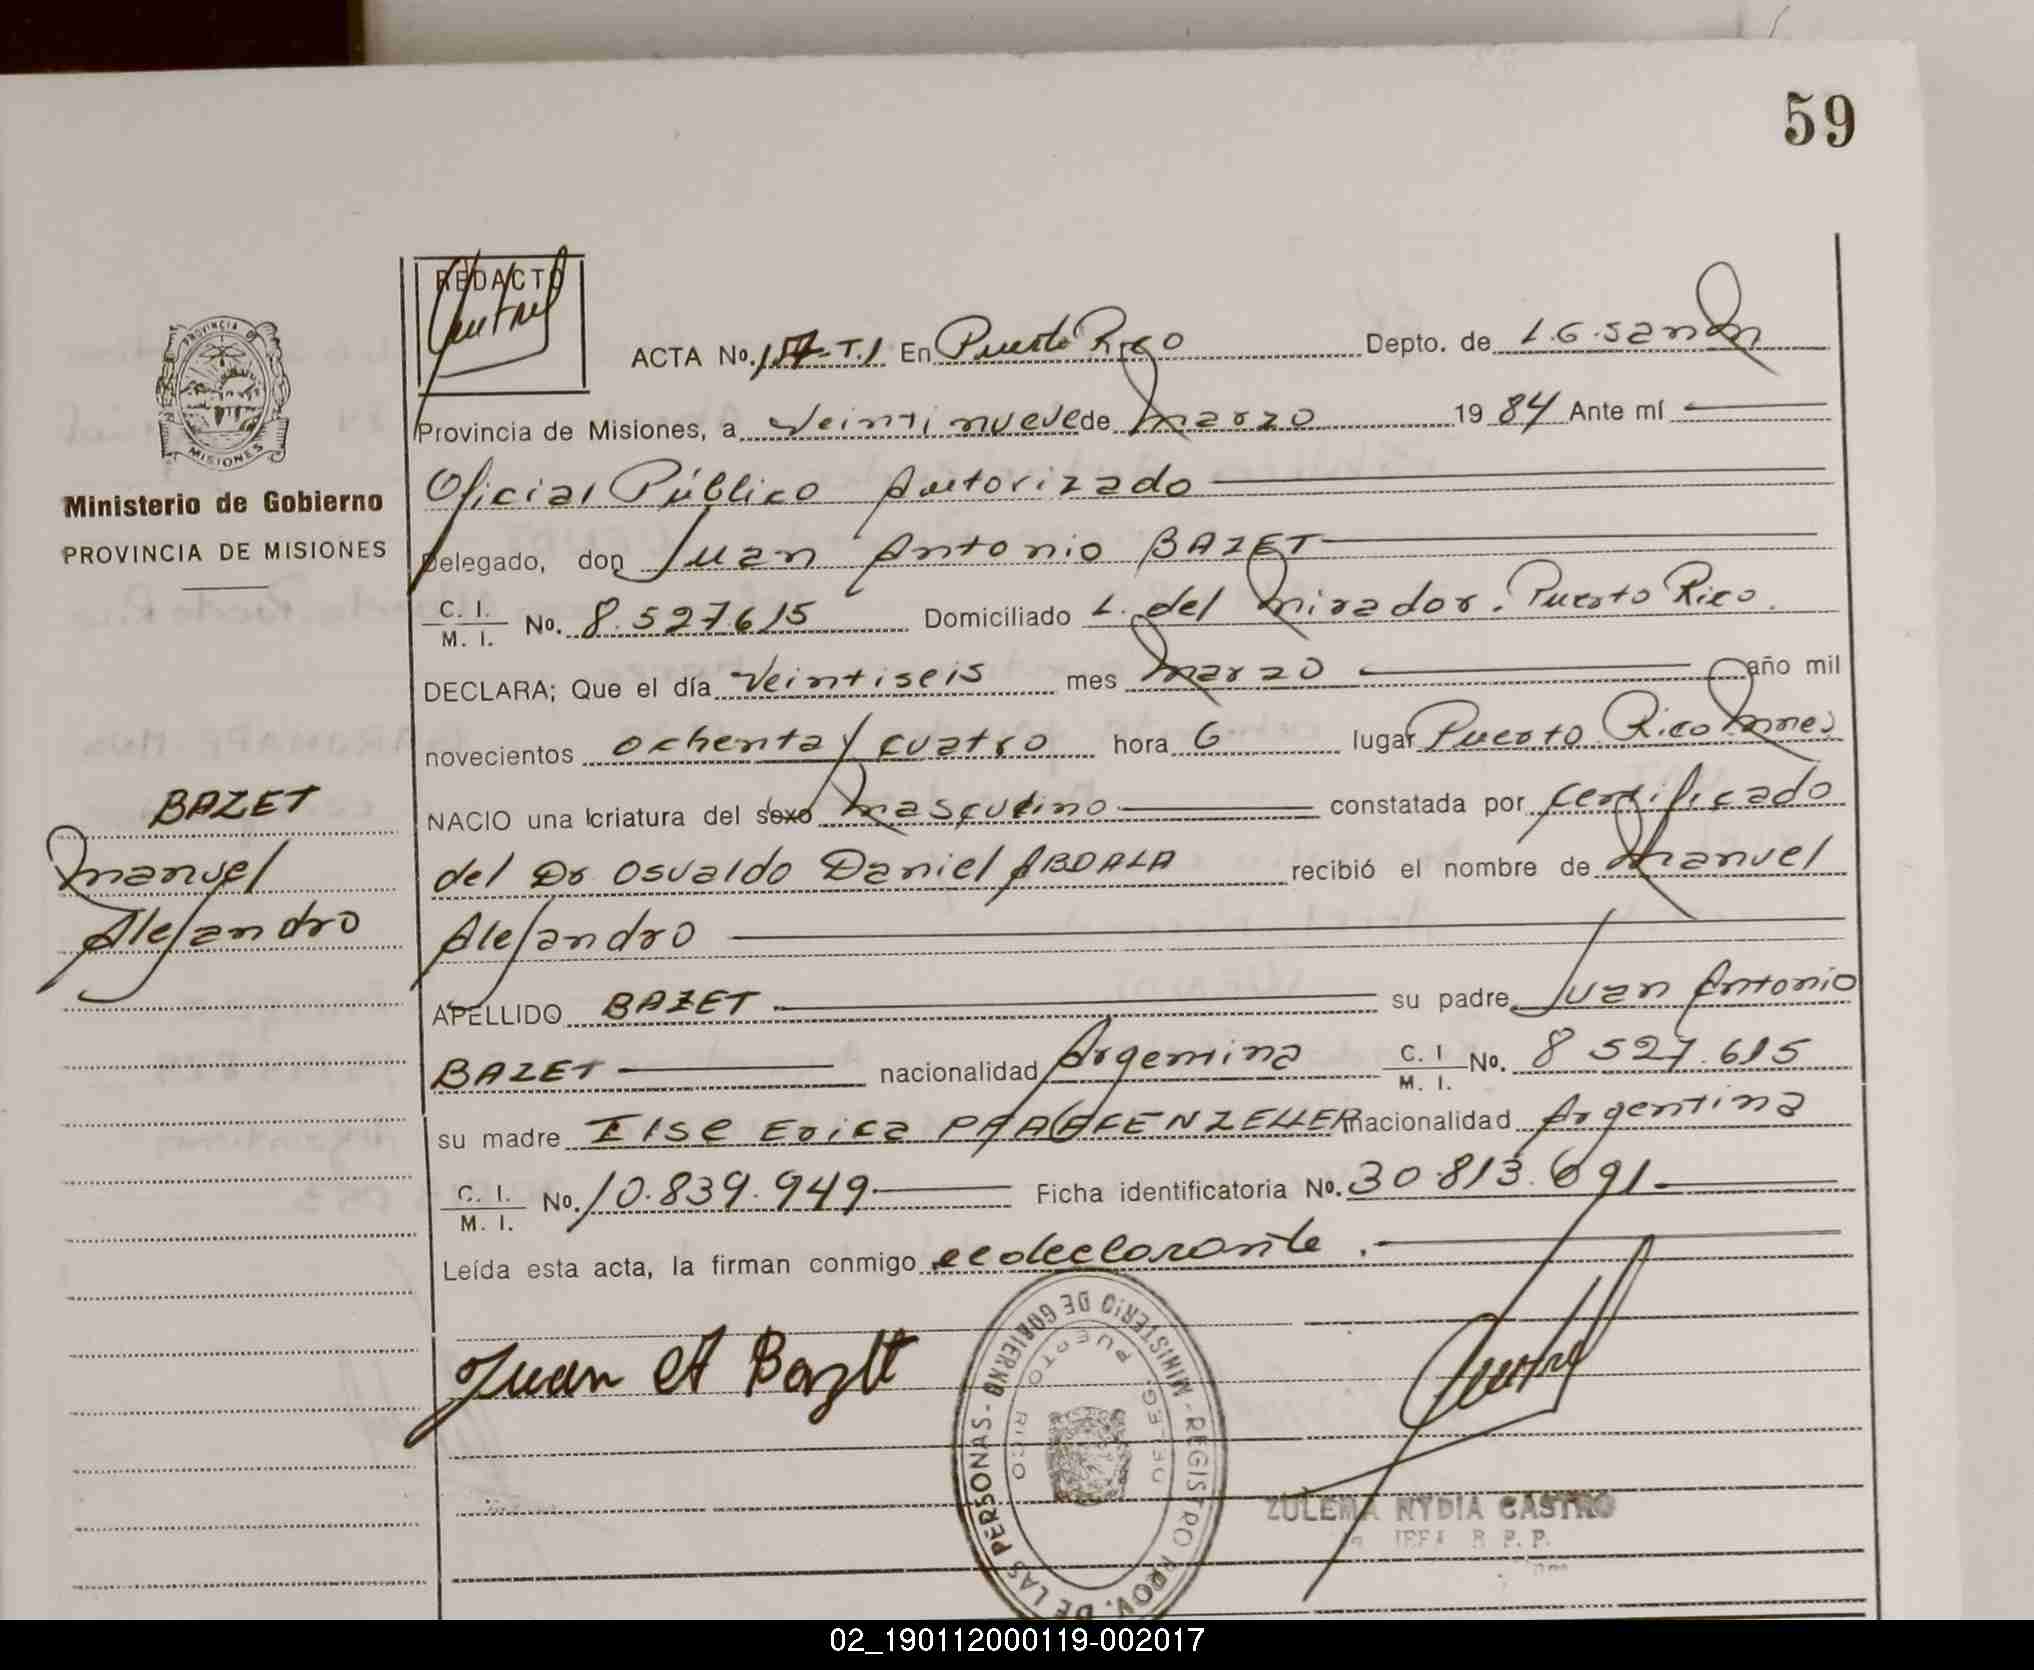 59
REDACTO
PROVINCIA DE
MISIONES
ACTA No. 157-T.I En Puerto Rico Depto. de L.G.San M
Provincia de Misiones, a Veintinueve de Marzo 1984 Ante mí
Ministerio de Gobierno
PROVINCIA DE MISIONES
Oficial Público Autorizado
Delegado, don Juan Antonio BAZET
C. I.
M. I. No. 8.527.615 Domiciliado L. del Mirador. Puerto Rico.
DECLARA; Que el día Veintiseis mes Marzo año mil
novecientos ochenta y cuatro hora 6 lugar Puerto Rico Mnes
BAZET
Manuel
Alejandro
NACIO una criatura del sexo Masculino constatada por Certificado
del Dr Osvaldo Daniel ABDALA recibió el nombre de Manuel
Alejandro
APELLIDO BAZET su padre Juan Antonio
BAZET nacionalidad Argentina C. I
M. I. No. 8 527.615
su madre Ilse Erica nacionalidad Argentina
C. I.
M. I. No. 10.839.949 Ficha identificatoria No. 30.813.691
Leída esta acta, la firman conmigo el declarante.
Juan A Bazet
MINISTERIO DE GOBIERNO - REGISTRO PROV. DE LAS PERSONAS
PUERTO RICO
ZULEMA NYDIA CASTRO
JEFA R. P. P.
02_190112000119-002017